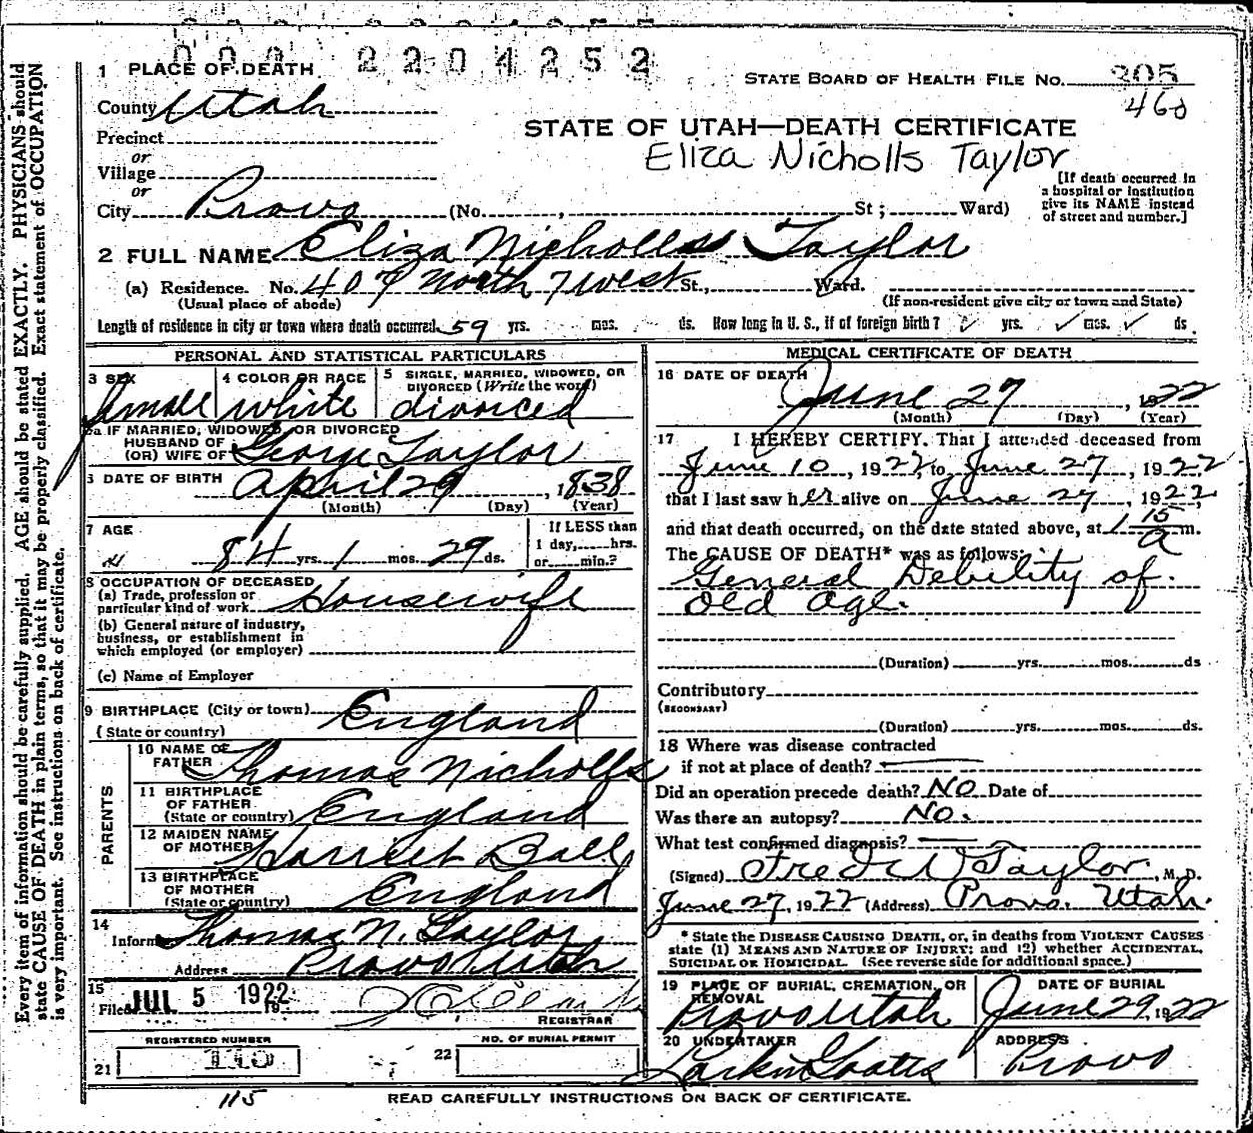 000 2204252
1 PLACE OF DEATH
STATE BOARD OF HEALTH FILE NO. 305
460
County Utah
STATE OF UTAH—DEATH CERTIFICATE
Precinct
or
Eliza Nicholls Taylor
Village
or
[If death occurred in a hospital or institution give its NAME instead of street and number.]
City Provo (No. , St ; Ward)
2 FULL NAME Eliza Nicholls Taylor
(a) Residence. No. 407 North 7 West St., Ward.
(Usual place of abode) (If non-resident give city or town and State)
Length of residence in city or town where death occurred 59 yrs. mos. ds. How long in U. S., if of foreign birth? ✓ yrs. ✓ mos. ✓ ds.
PERSONAL AND STATISTICAL PARTICULARS
3 SEX
female
4 COLOR OR RACE
white
5 SINGLE, MARRIED, WIDOWED, OR DIVORCED (Write the word)
divorced
5a IF MARRIED, WIDOWED, OR DIVORCED
HUSBAND OF
(OR) WIFE OF George Taylor
6 DATE OF BIRTH April 29, 1838
(Month) (Day) (Year)
7 AGE
84 yrs. 1 mos. 29 ds.
If LESS than
1 day, hrs.
or min.?
8 OCCUPATION OF DECEASED
(a) Trade, profession or
particular kind of work Housewife
(b) General nature of industry,
business, or establishment in
which employed (or employer)
(c) Name of Employer
9 BIRTHPLACE (City or town)
(State or country) England
PARENTS
10 NAME OF
FATHER Thomas Nicholls
11 BIRTHPLACE
OF FATHER
(State or country) England
12 MAIDEN NAME
OF MOTHER Harriet Ball
13 BIRTHPLACE
OF MOTHER
(State or country) England
14
Inform Thomas N. Taylor
Address Provo Utah
15
Filed JUL 5 1922 19
REGISTRAR
REGISTERED NUMBER
21 115
NO. OF BURIAL PERMIT
22
115
MEDICAL CERTIFICATE OF DEATH
16 DATE OF DEATH
June 27, 1922
(Month) (Day) (Year)
17 I HEREBY CERTIFY, That I attended deceased from
June 10, 1922, to June 27, 1922
that I last saw her alive on June 27, 1922,
and that death occurred, on the date stated above, at 1 15 a m.
The CAUSE OF DEATH* was as follows:
General Debility of
old age.
(Duration) yrs. mos. ds
Contributory
(SECONDARY)
(Duration) yrs. mos. ds.
18 Where was disease contracted
if not at place of death?
Did an operation precede death? NO Date of
Was there an autopsy? NO.
What test confirmed diagnosis?
(Signed) Fred W Taylor, M. D.
June 27, 1922 (Address) Provo. Utah.
* State the DISEASE CAUSING DEATH, or, in deaths from VIOLENT CAUSES
state (1) MEANS AND NATURE OF INJURY; and (2) whether ACCIDENTAL,
SUICIDAL OR HOMICIDAL. (See reverse side for additional space.)
19 PLACE OF BURIAL, CREMATION, OR
REMOVAL
Provo Utah
DATE OF BURIAL
June 29, 1922
20 UNDERTAKER
ADDRESS
Provo
READ CAREFULLY INSTRUCTIONS ON BACK OF CERTIFICATE.
Every item of information should be carefully supplied. AGE should be stated EXACTLY. PHYSICIANS should
state CAUSE OF DEATH in plain terms, so that it may be properly classified. Exact statement of OCCUPATION
is very important. See instructions on back of certificate.